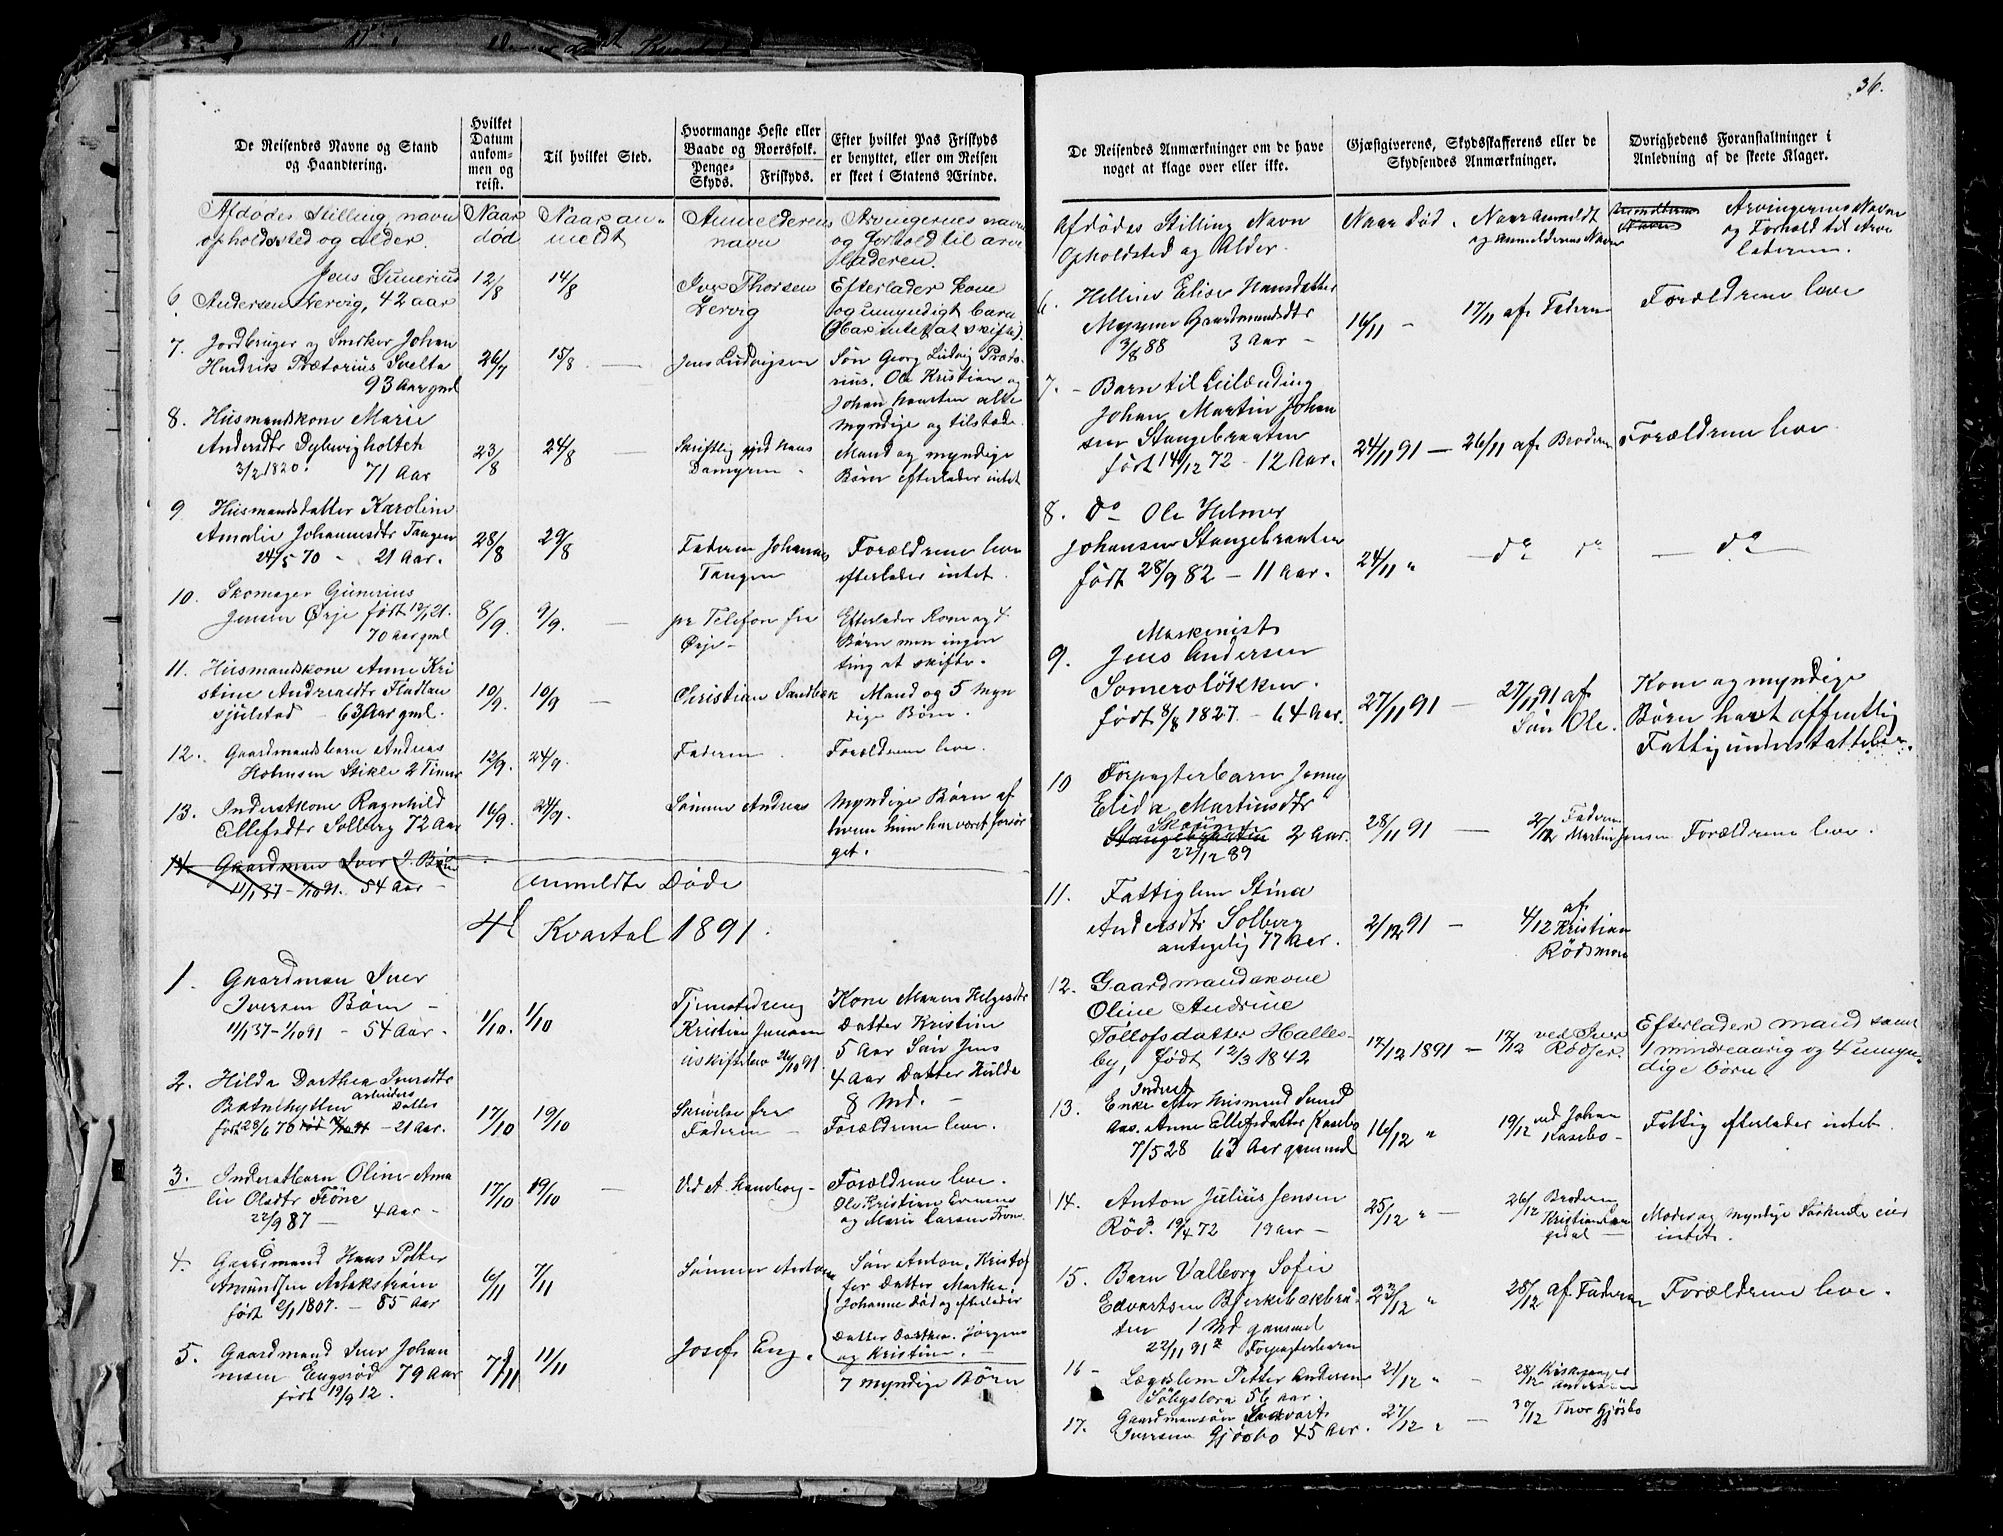 36.
De Reisendes Navne og Stand
og Haandtering.
Hvilket
Datum
ankom-
men og
reist.
Til hvilket Sted.
Hvormange Heste eller
Baade og Roersfolk.
Penge-
Skyds.
Friskyds.
Efter hvilket Pas Friskyds
er benyttet, eller om Reisen
er skeet i Statens Ærinde.
Afdødes Stilling, navn
opholdssted og alder.
Naar
død
Naar an-
meldt
Anmelderens
navn
Arvingernes navn
og forhold til arve
laderen.
6. Jens Gunerius
Andersen Nervig, 42 aar
12/8
14/8
Iver Thorsen
Lervig
Efterlader kone
og umyndigt barn
(Har intet at skifte).
7. Jordbruger og Snekker Johan
Hendrik Prætorius Svelta
93 Aar gml
26/7
15/8 —
Jens Ludvigsen
Søn Georg Ludvig Præto-
rius. Ole Kristian og
Johan alle
myndige og tilstede.
8. Husmandskone Marie
Andersdtr
3/2 1820. 71 Aar
23/8
24/8 —
Skriftlig ved Hans
Damyren
Mand og myndige
Børn efterlader intet
9. Husmandsdatter Karoline
Amalie Johannesdtr Tangen
24/5 70 - 21 Aar.
28/8
29/8
Faderen Johannes
Tangen
Forældrene leve
efterlader intet.
10. Skomager Gunerius
Jensen Ørje født 12/1 21.
70 aar gml
8/9.
9/9. —
pr Telefon fra
Ørje -
Efterlader Kone og 4
Børn men ingen
ting at skifte.
11. Husmandskone Anne Kri
stine Andreasdtr Fladlan
sjulstad - 63 Aar gml.
10/9.
10/9 —
Christian Sandbæk
Mand og 5 Myn
dige Børn.
12. Gaardmandsbarn Andreas
Holmsen Stikle 2 Timer
12/9.
24/9.
Faderen
Forældrene leve.
13. Inderstkone Ragnhild
Ellefsdtr Solberg 72 Aar
16/9.
24/9.
Sønnen Andreas
Myndige Børn af
hvem hun har været forsør
get.
14. Gaardman Iver I. Bøen
11/1 37 - 1/10 91. 54 Aar -
Anmeldte Døde
4d Kvartal 1891.
1. Gaardman Iver
Iversen Bøen -
11/1 37 - 1/10 91 - 54 Aar.
1/10.
1/10
Tjenestedreng
Kristian Jensen
26/10 91
Kone Maren Helgesdtr
Datter Kristine
5 Aar Søn Jens
4 Aar Datter Hulda
8 Md. -
2. Hilda Dorthea Iversdtr
Botnehytten arbeiders Datter
født 28/6 70 død 17/10 91 - 21 Aar.
17/10
19/10
Skrivelse fra
Faderen -
Forældrene leve.
3. Inderstbarn Oline Ama
lie Olsdtr Tröne
22/9 87 - 4 Aar -
17/10
19/10 —
Ved A. Haneborg -
Forældrene leve.
Ole Kristian Evensen
og Marie Larsen Trøn
4. Gaardmand Hans Petter
Amundsen Aslakstrøm
født 2/1 1807. - 85 Aar
6/11
7/11
Sønnen Anton
Søn Anton, Kristof
fer Datter Marthe,
Johanne død og efterlader
Datter Dorthea. Jørgine
og Kristine.
5. Gaardmand Iver Johan
nesen Engsrød 79 Aar
født 19/9 12.
7/11
11/11
Josef Eng.
7 myndige Børn
De Reisendes Anmærkninger om de have
noget at klage over eller ikke.
Gjæstgiverens, Skydsskafferens eller de
Skydsendes Anmærkninger.
Øvrighedens Foranstaltninger i
Anledning af de skete Klager.
Afdødes Stilling Navn
Opholdsted og Alder.
Naar død.
Naar Anmeldt
og Anmelderens Navn
Anmelderens
Navn
Arvingernes Navn
og Forhold til Arve
laderen.
6. Helline Elise Hansdatter
Myrene Gaardmandsdtr
3/8 88 3 Aar -
16/11 -
17/11 af Faderen
Forældrene leve
7. - Barn til Leilænding
Johan Martin Johan
sen Stangebraaten
født 14/12 72 - 12 Aar.
24/11 91 —
26/11 af Broderen
Forældrene leve
8. do Ole Helmer
Johansen Stangebraaten
født 28/9 82 - 11 Aar.
24/11 "
— do do
— do —
9. Maskinist
Jens Andersen
Someroløkken.
født 8/8 1827. - 64 Aar.
27/11 91 —
27/11 91 af
Søn Ole.
Kone og myndige
Børn havt offentlig
Fattigunderstøttelse.
10 Forpagterbarn Jenny
Elida Martinsdtr
Stangebraaten 2 Aar.
22/12 89
28/11 91 —
2/12 Faderen
Martin Jensen
Forældrene leve.
11. Fattiglem Stina
Andersdtr Solberg
antagelig 77 Aar.
2/12 91 —
4/12 af
Kristian
Rödsmoen
12. Gaardmandskone
Oline Andrine
Tollofsdatter Halles-
by, født 12/3 1842
17/12 1891 —
17/12 ved Iver
Rödser
Efterlader mand samt
1 mindreaarig og 4 umyn-
dige børn.
13. Inderst
Enke efter Husmand Svend
Aas. Anne Ellefsdatter Kasebo
7/5 28 63 Aar gammel
16/12 "
19/12 ved Johan
Kasebo -
Fattig efterlader intet.
14. Anton Julius Jensen
Röd. 19/4 72 19 aar -
25/12 " -
26/12 Broderen
Kristian
Moder og myndige Søskende eier
intet.
15. Barn Valborg Sofie
Edvartsen Bjerkebækbrå-
ten 1 Md gammel
22/11 91 Forpagterbarn
23/12 "
28/12 af Faderen
Forældrene leve.
16 - Lægslem Petter Andersen
56 aar.
21/12 " -
28/12
Andersen
17. Gaardmansøn Edvart
Iversen Gjøsbo 45 Aar.
27/12 " -
30/12 Thor Gjøsbo